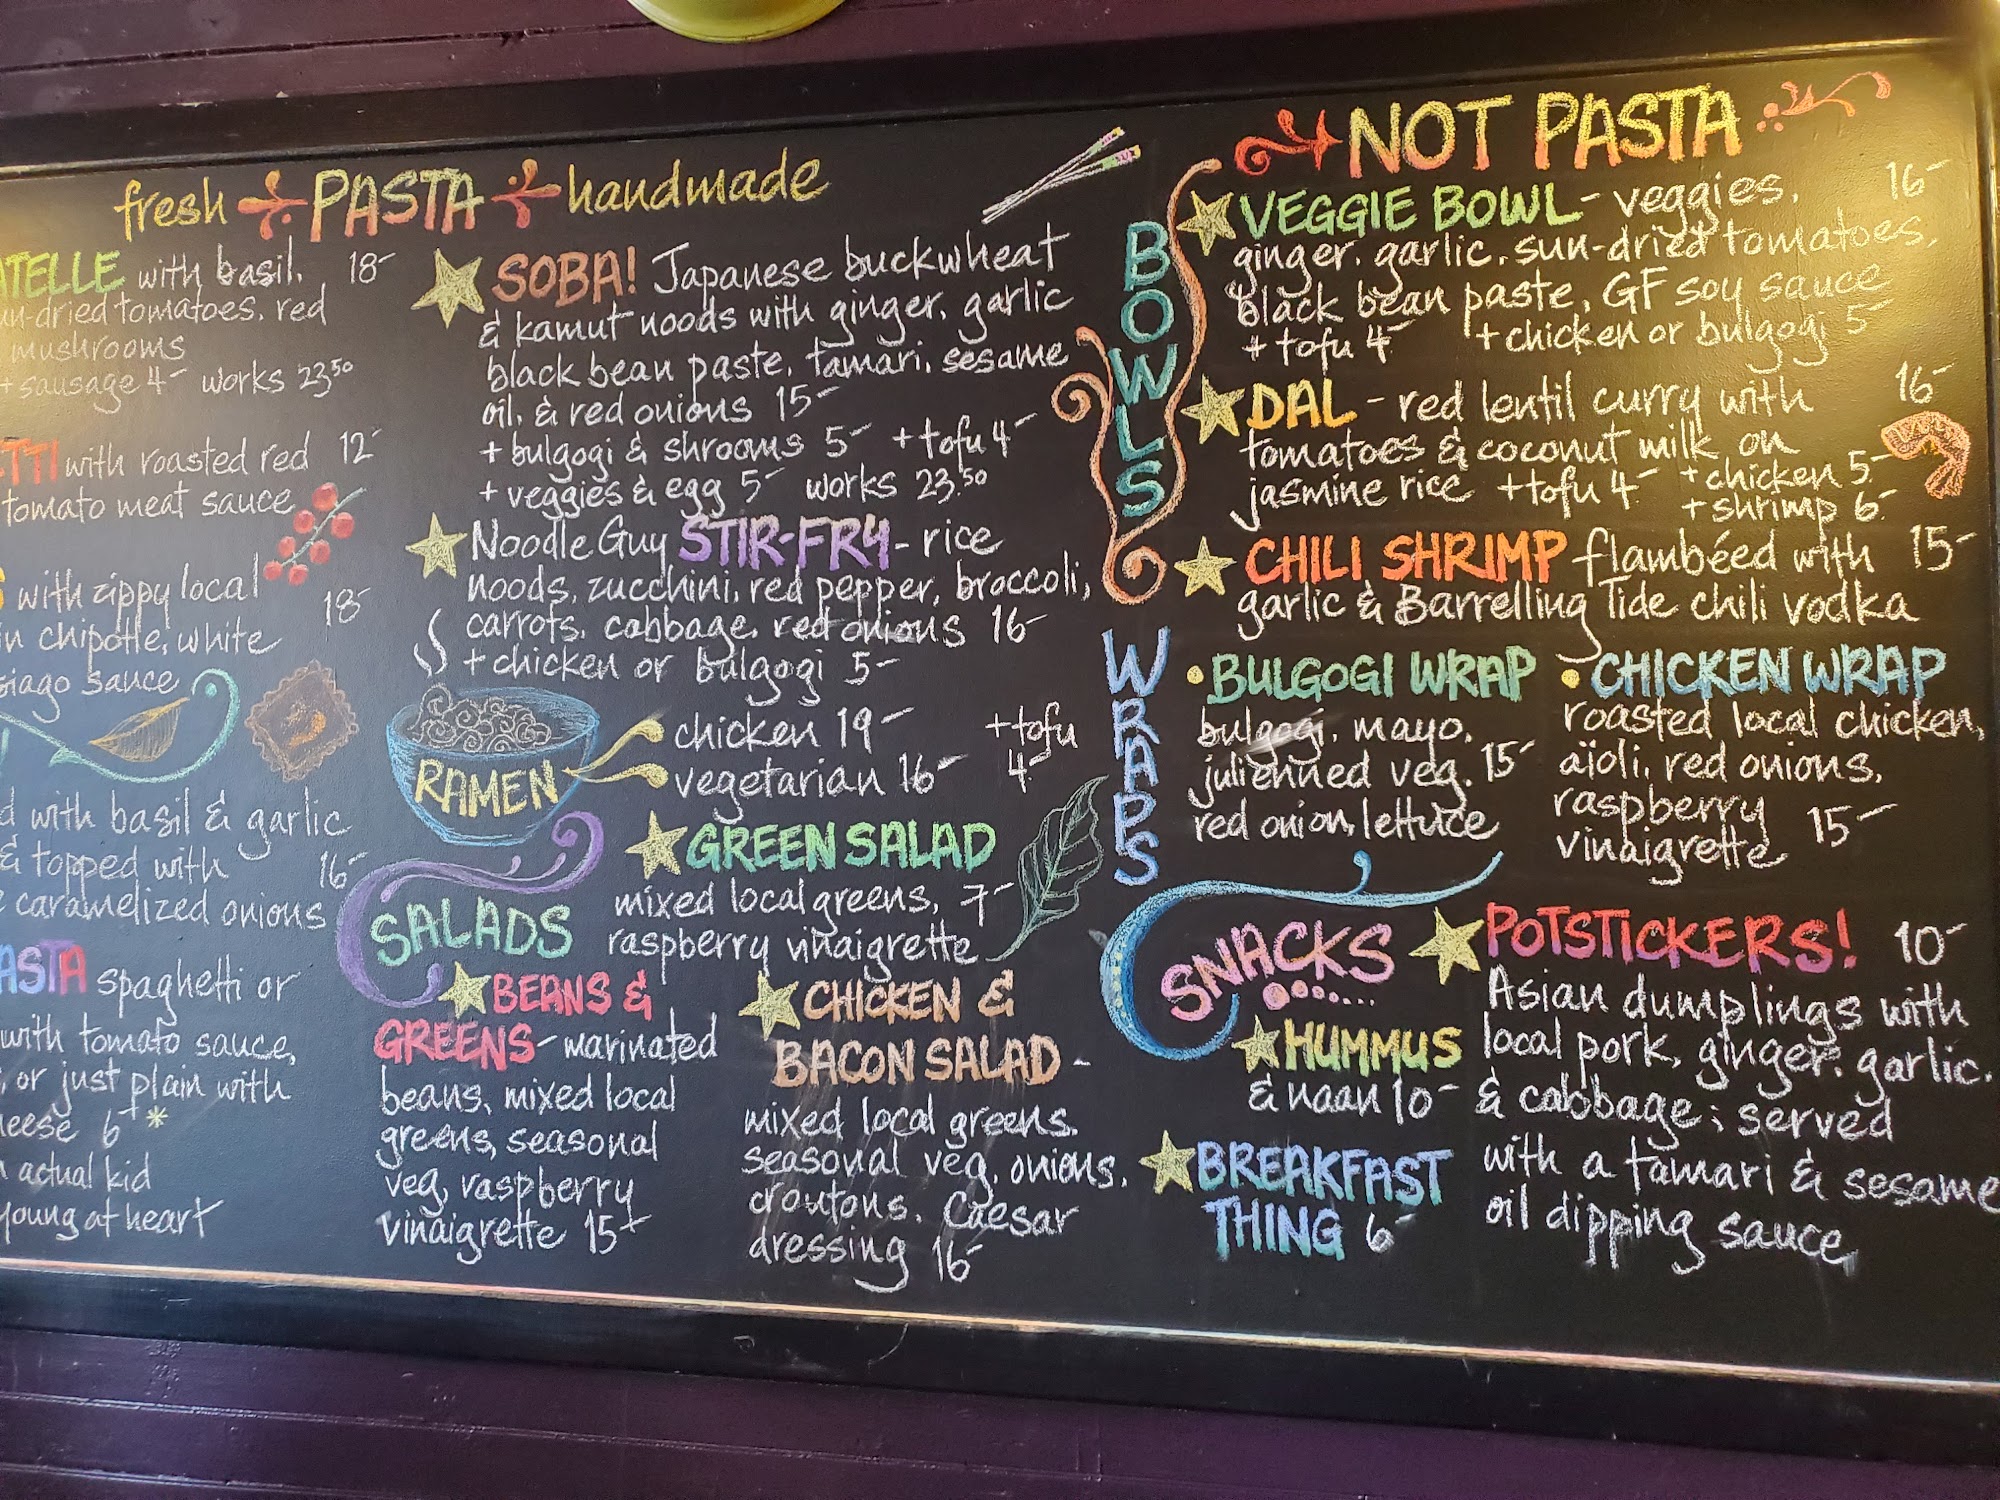 fresh PASTA handmade
ATELLE with basil, 18-
un-dried tomatoes, red
mushrooms
+ sausage 4- works 23.50
ETTI with roasted red 12-
tomato meat sauce
S with zippy local
in chipotle, white 18-
siago sauce
!
d with basil & garlic
& topped with 16-
caramelized onions
ASTA spaghetti or
with tomato sauce,
, or just plain with
heese 6- *
actual kid
young at heart
SOBA! Japanese buckwheat
& kamut noods with ginger, garlic
black bean paste, tamari, sesame
oil, & red onions 15-
+ bulgogi & shrooms 5- + tofu 4-
+ veggies & egg 5- works 23.50
Noodle Guy STIR-FRY - rice
noods, zucchini, red pepper, broccoli,
carrots, cabbage, red onions 16-
+ chicken or bulgogi 5-
RAMEN
chicken 19- + tofu
vegetarian 16- 4-
SALADS
GREEN SALAD
mixed local greens, 7-
raspberry vinaigrette
BEANS &
GREENS - marinated
beans, mixed local
greens, seasonal
veg, raspberry
vinaigrette 15-
CHICKEN &
BACON SALAD -
mixed local greens,
seasonal veg, onions,
croutons, Caesar
dressing 16-
NOT PASTA
BOWLS
VEGGIE BOWL - veggies, 16-
ginger, garlic, sun-dried tomatoes,
black bean paste, GF soy sauce
+ tofu 4- + chicken or bulgogi 5-
DAL - red lentil curry with 16-
tomatoes & coconut milk on
jasmine rice + tofu 4- + chicken 5-
+ shrimp 6-
CHILI SHRIMP flambéed with 15-
garlic & Barrelling Tide chili vodka
WRAPS
BULGOGI WRAP
bulgogi, mayo,
julienned veg, 15-
red onion, lettuce
CHICKEN WRAP
roasted local chicken,
aïoli, red onions,
raspberry
vinaigrette 15-
SNACKS
HUMMUS
& naan 10-
BREAKFAST
THING 6-
POTSTICKERS! 10-
Asian dumplings with
local pork, ginger, garlic,
& cabbage; served
with a tamari & sesame
oil dipping sauce